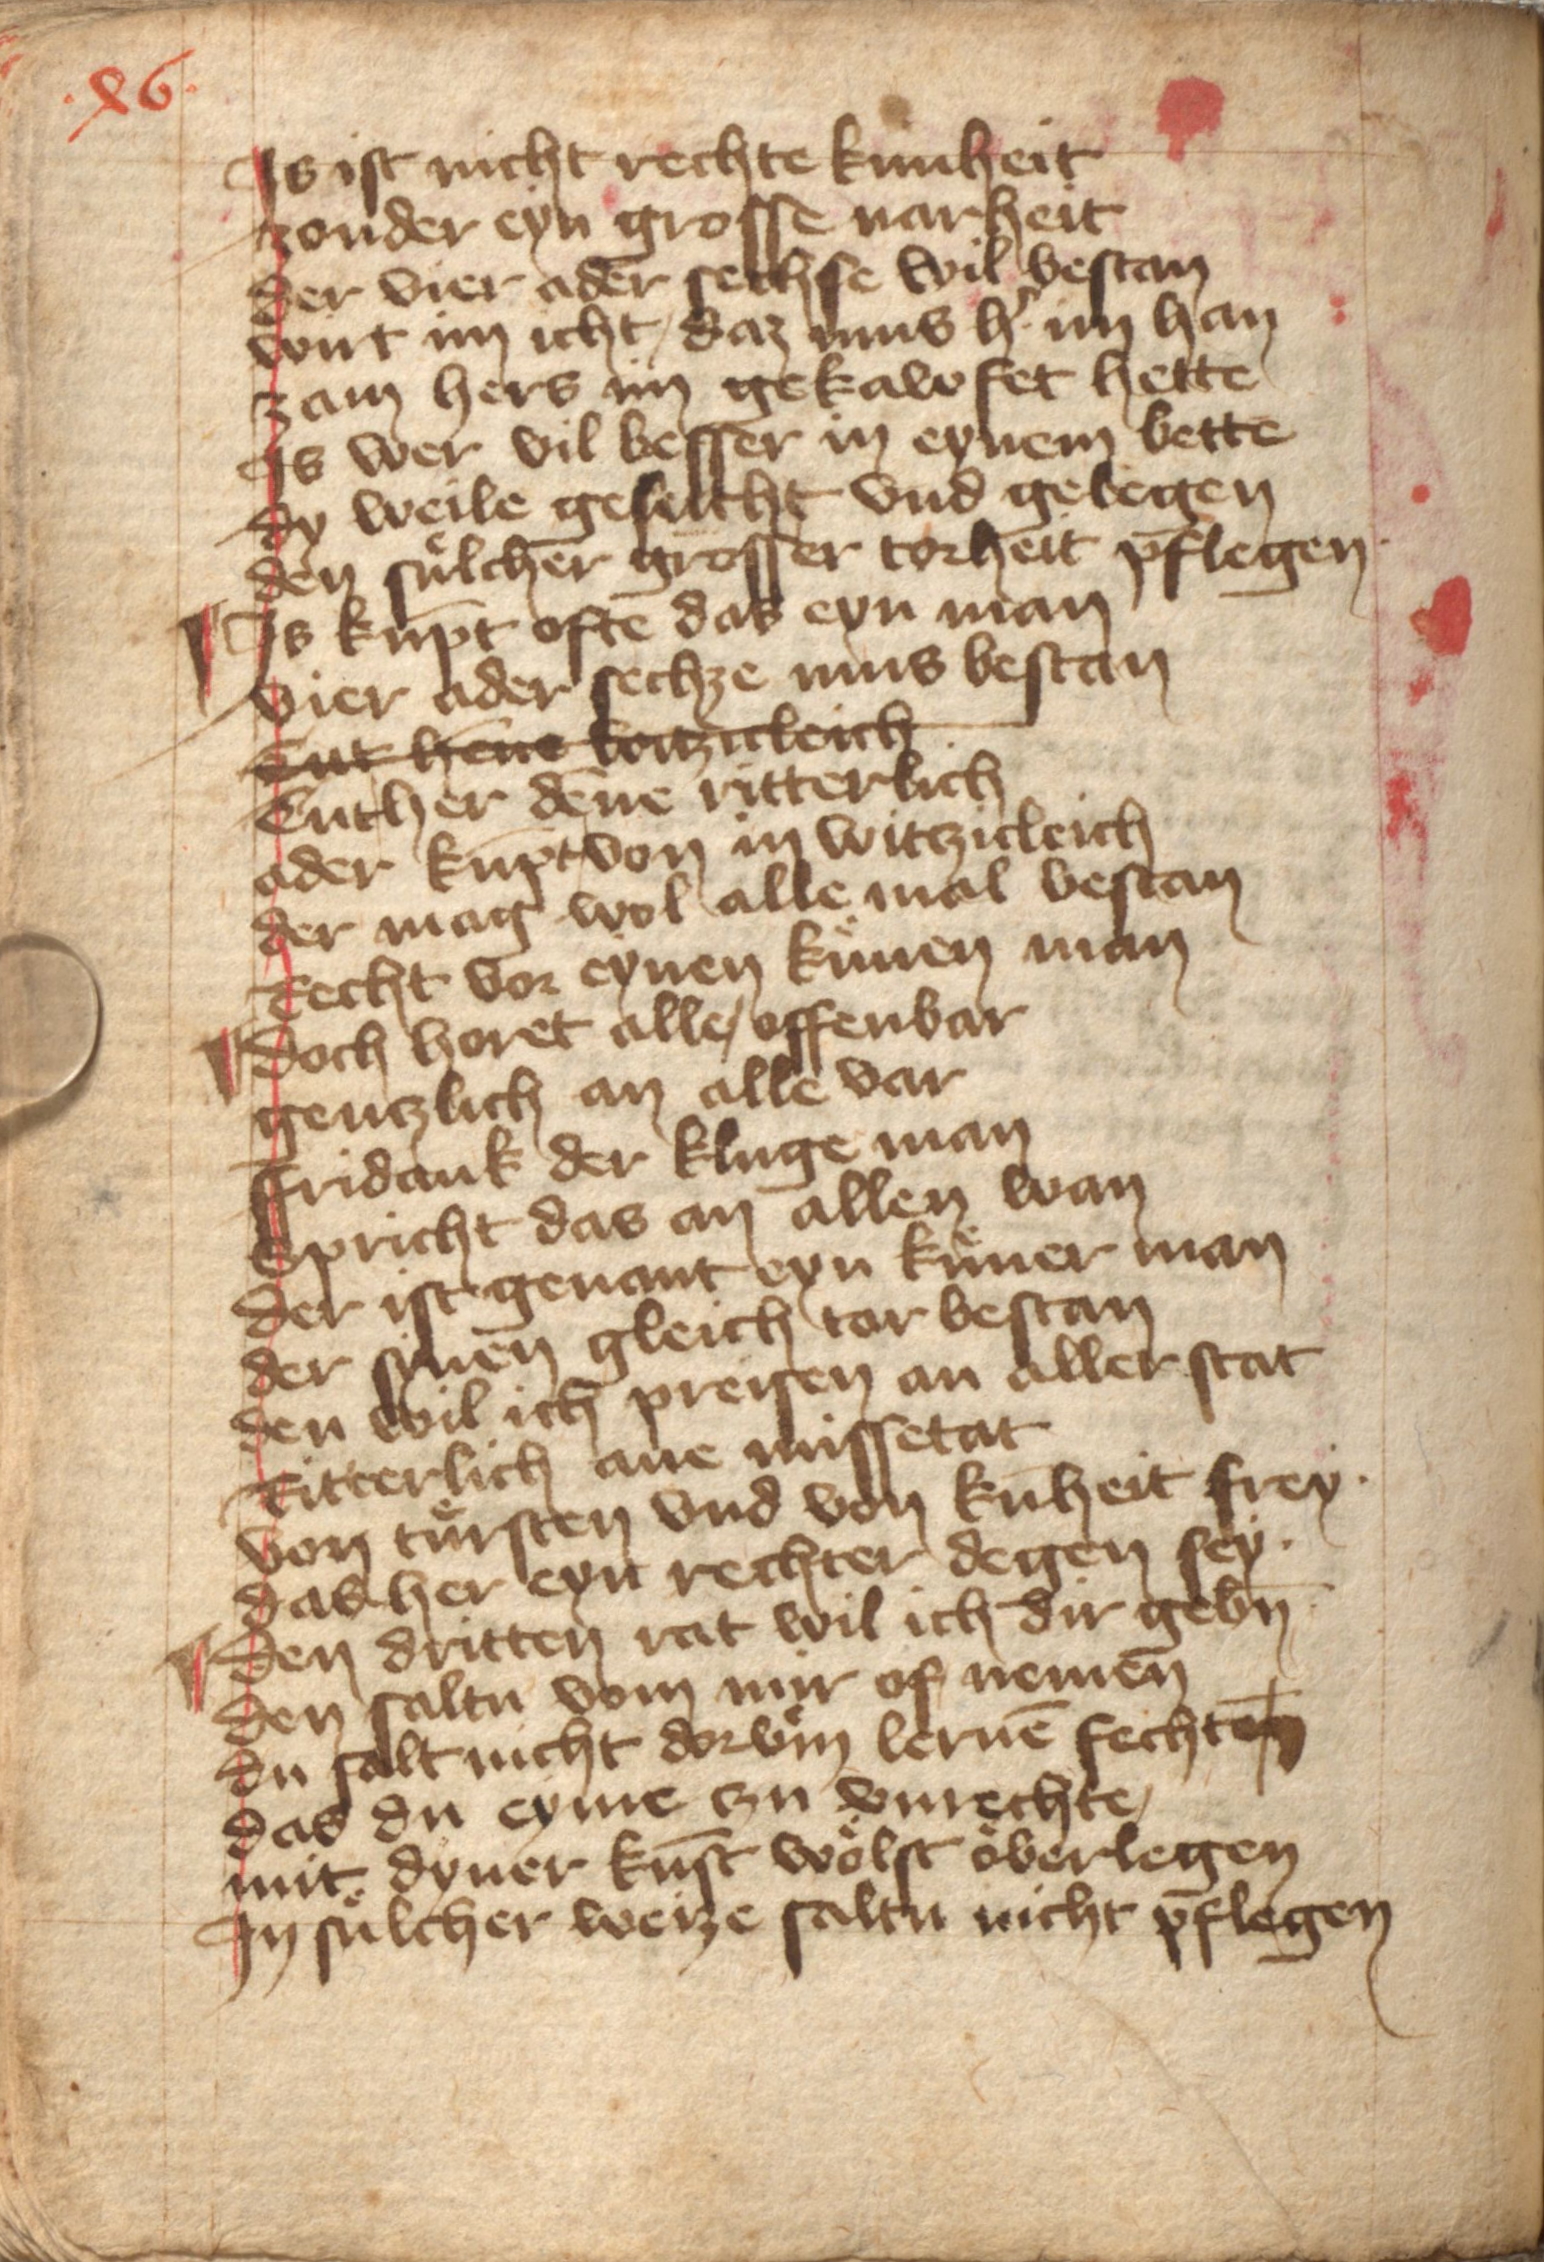 ·x6·
Is ist nicht rechte kunheit
zonder eyn grosse narheit
der vier ader sechse wil bestan
wirt im icht / daz mus h' im han
zam hers im gekawfet hette
Is wer vil besser in eynem bette
dy weile geseicht vnd gelegen
den sůlcher grosser torheit pflegen
Is kūpt ofte das eyn man
vier ader sechze mus bestan
Tut here witziclich
Tuther dēne ritterlich
ader kūpt von in witzicleich
der mag wol alle mal bestan
Recht vor eynen kůnen man
Doch horet alle / offenbar
gentzlich an alle var
ffridank der kluge man
Spricht das an allen wan
der ist genant eyn kůner man
der synen gleich tar bestan
den wil ich preisen an aller stat
Ritterlich ane missetat
von tůrsten vnd von kūheit frey ·
das her eyn rechter degen sey ·
Den dritten rat wil ich dir gebn̄
den saltu vom mir of nemen
du salt nicht dorům lernē fechten
das du eyme czu vnrechte /
mit dyner kūst wőlst őberlegen
In sůlcher weize saltu nicht pflegen